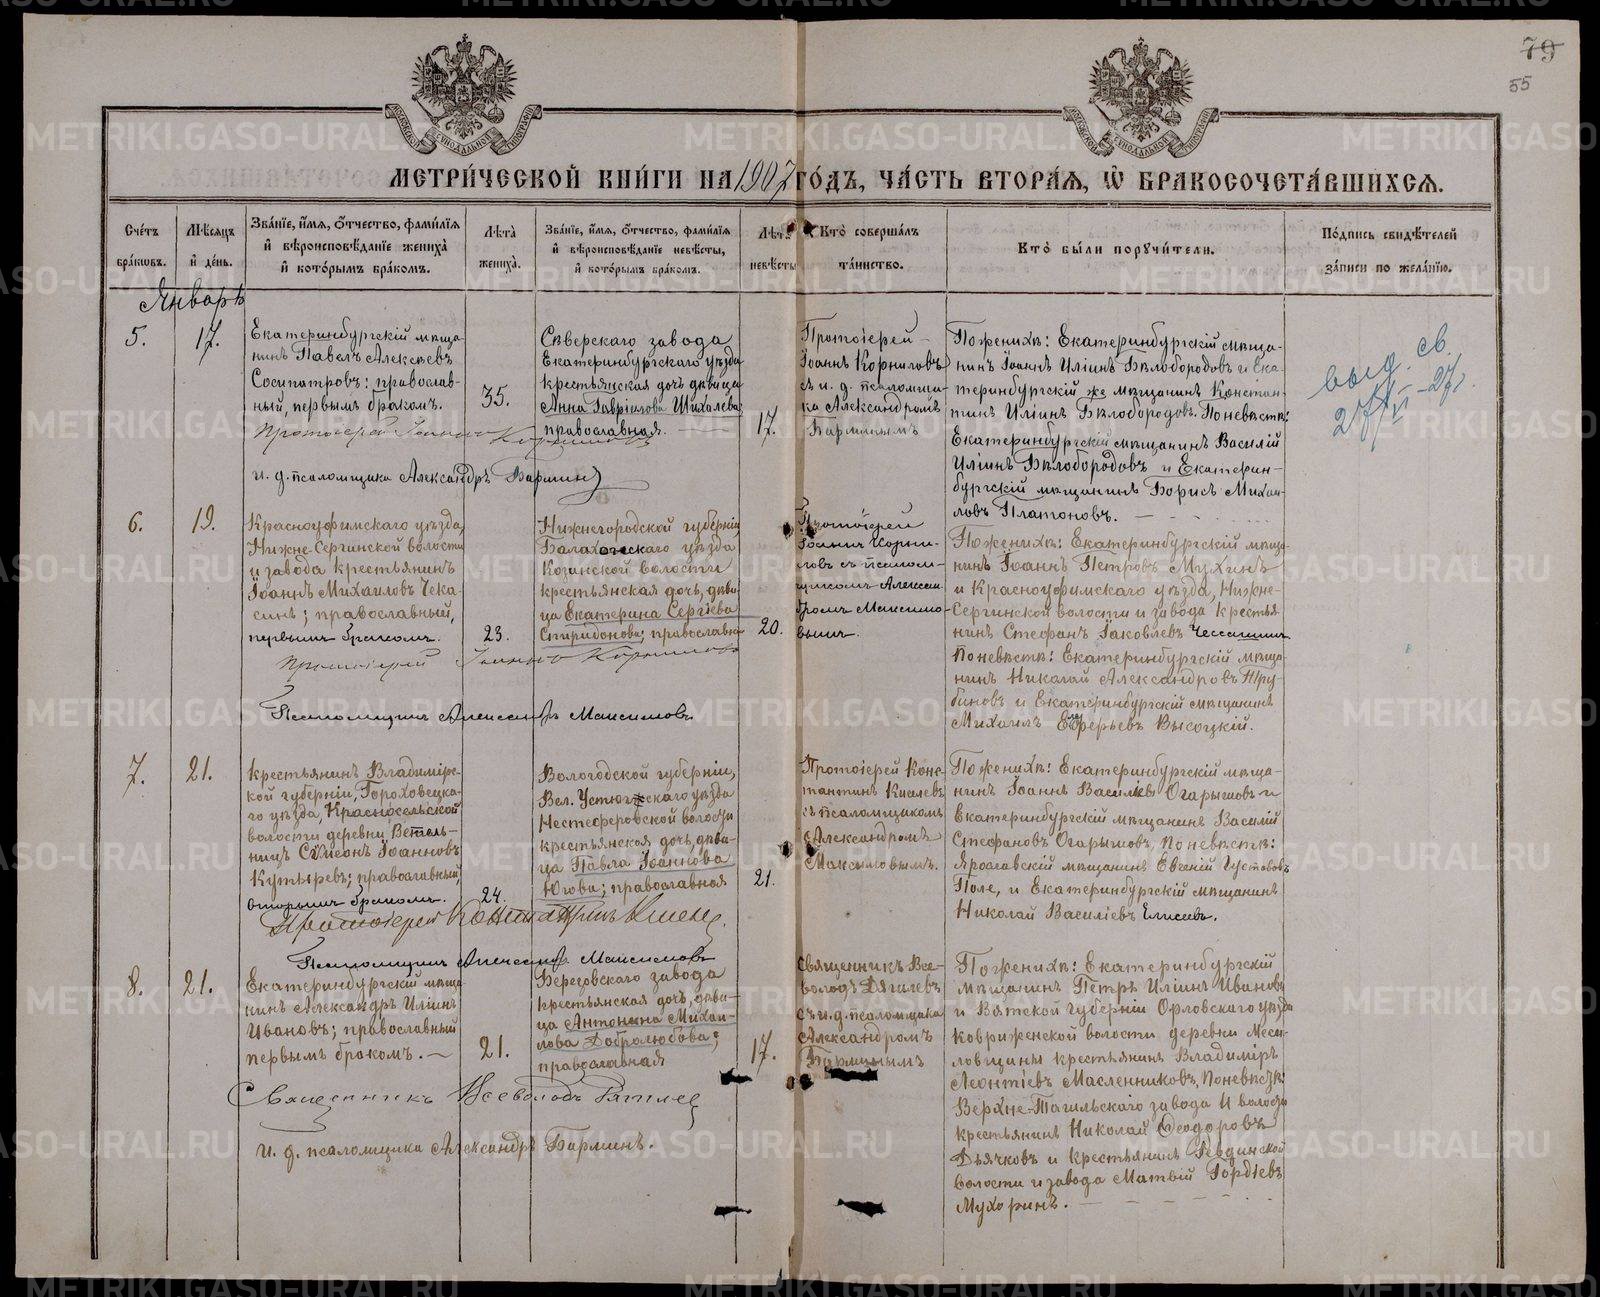 79
55
МЕТРИ́ЧЕСКОЙ КНИ́ГИ НА 1907 ГО́ДЪ, ЧА́СТЬ ВТОРА́Я, Ѡ БРАКОСОЧЕТА́ВШИХСЯ.
Сче́тъ бра́ковъ.
Мѣ́сяцъ и де́нь.
Зва́нїе, и́мя, о́тчество, фами́лїя и вѣроисповѣ́данїе жениха̀ и кото́рымъ бра́комъ.
Лѣта̀ жениха̀.
Зва́нїе, и́мя, о́тчество, фами́лїя и вѣроисповѣ́данїе невѣ́сты, и кото́рымъ бра́комъ.
Лѣта̀ невѣ́сты
Кто̀ соверша́лъ та́инство.
Кто̀ бы́ли поручи́тели.
По́дпись свидѣ́телей за́писи по жела́нїю.
Январь
5.
17.
Екатеринбургскій мѣща-
нинъ Павелъ Алексѣевъ
Сосипатровъ: православ-
ный, первымъ бракомъ.
35.
Сѣверскаго завода
Екатеринбургскаго уѣзда
крестьянская дочь дѣвица
Анна Гавріилова Шихалева;
православная.
17.
Протоіерей
Іоаннъ Корниловъ
съ и. д. псаломщи-
ка Александромъ
Барминымъ
По женихѣ: Екатеринбургскій мѣща-
нинъ Іоаннъ Иліинъ Бѣлобородовъ и Ека-
теринбургскій же мѣщанинъ Констан-
тинъ Иліинъ Бѣлобородовъ. По невѣстѣ:
Екатеринбургскій мѣщанинъ Василій
Иліинъ Бѣлобородовъ и Екатерин-
бургскій мѣщанинъ Борисъ Михаи-
ловъ Платоновъ.
выд. св.
Протоіерей Іоаннъ Корниловъ
и. д. псаломщика Александръ Барминъ
6.
19.
Красноуфимскаго уѣзда,
Нижне-Сергинской волости
и завода крестьянинъ
Іоаннъ Михаиловъ Чека-
синъ; православный,
первымъ бракомъ.
23.
Нижнегородской губерніи
Балахонскаго уѣзда
Козинской волости
крестьянская дочь, дѣви-
ца Екатерина Сергіева
Спиридонова; православна
20.
Протоіерей
Іоаннъ Корни-
ловъ съ псалом-
щикомъ Алексан-
дромъ Максимо-
вымъ.
По женихѣ: Екатеринбургскій мѣща-
нинъ Іоаннъ Петровъ Мухинъ
и Красноуфимскаго уѣзда, Нижне-
Сергинской волости и завода крестья-
нинъ Стефанъ Іаковлевъ
По невѣстѣ: Екатеринбургскій мѣща-
нинъ Николай Александровъ Тру-
биновъ и Екатеринбургскій мѣщанинъ
Михаилъ Высоцкій.
Протоіерей Іоаннъ Корниловъ
Псаломщикъ Александръ Максимовъ
7.
21.
Крестьянинъ Владимірс-
кой губерніи, Гороховецка-
го уѣзда, Красносельской
волости деревни Ветель-
ницъ Сѵмеонъ Іоанновъ
Кутыревъ; православный,
вторымъ бракомъ.
24.
Вологодской губерніи,
Вел. Устюгскаго уѣзда
Нестеферовской волости
крестьянская дочь, дѣви-
ца Павла Іоаннова
Югова; православная
21.
Протоіерей Конс-
тантинъ Киселевъ
съ псаломщикомъ
Александромъ
Максимовымъ.
По женихѣ: Екатеринбургскій мѣща-
нинъ Іоаннъ Василіевъ Огарышовъ и
Екатеринбургскій мѣщанинъ Василій
Стефановъ Огарышовъ, По невѣстѣ:
Ярославскій мѣщанинъ Евгеній Густавовъ
Поле, и Екатеринбургскій мѣщанинъ
Николай Василіевъ Елисевъ.
Протоіерей Константинъ Киселевъ
Псаломщикъ Александръ Максимовъ
8.
21.
Екатеринбургскій мѣща-
нинъ Александръ Иліинъ
Ивановъ; православный
первымъ бракомъ.
21.
Березовскаго завода
крестьянская дочь, дѣви-
ца Антонина Михаи-
лова Добролюбова;
православная
17.
Священникъ Все-
володъ Дягилевъ
съ и. д. псаломщика
Александромъ
Барминымъ
По женихѣ: Екатеринбургскій
мѣщанинъ Петръ Иліинъ Ивановъ
и Вятской губерніи Орловскаго уѣзда
Коврижской волости деревни Меси-
ловщины крестьянинъ Владиміръ
Леонтіевъ Масленниковъ, По невѣстѣ:
Верхне-Тагильскаго завода и волости
крестьянинъ Николай Ѳеодоровъ
Дьячковъ и крестьянинъ Ревдинской
волости и завода Матвій Гордіевъ
Мухоринъ.
Священникъ Всеволодъ Дягилевъ
и. д. псаломщика Александръ Барминъ.
METRIKI.GASO-URAL.RU